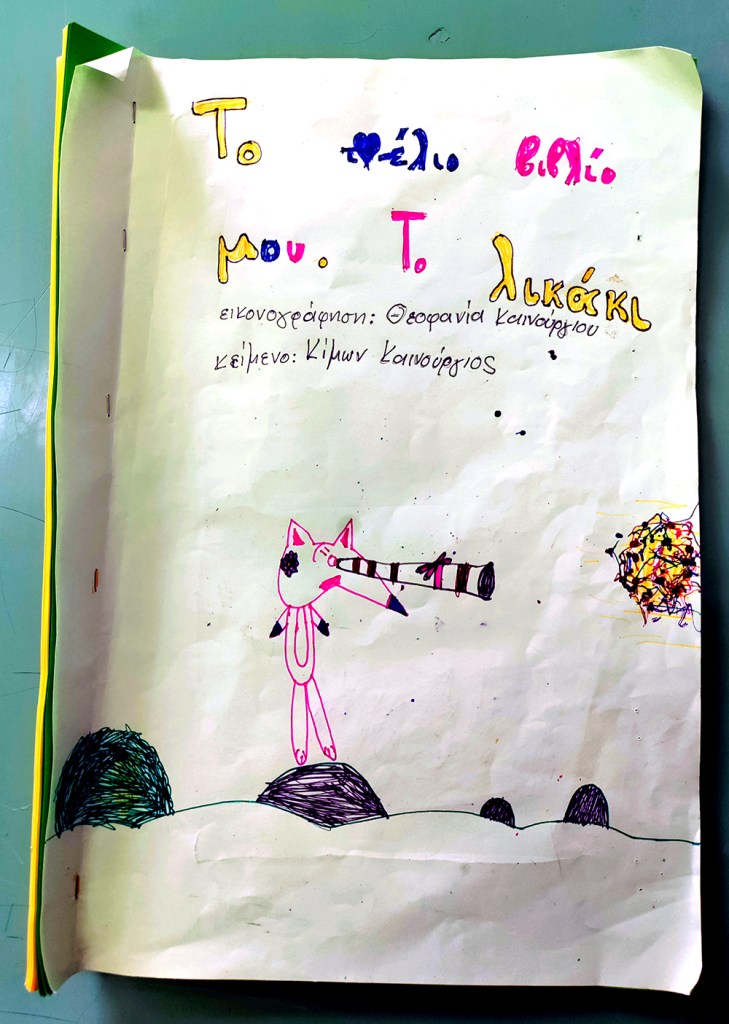 Το τέλιο βιβλίο
μου. Το λικάκι
εικονογράφηση: Θεοφανία Καινούργιου
κείμενο: Κίμων Καινούργιος